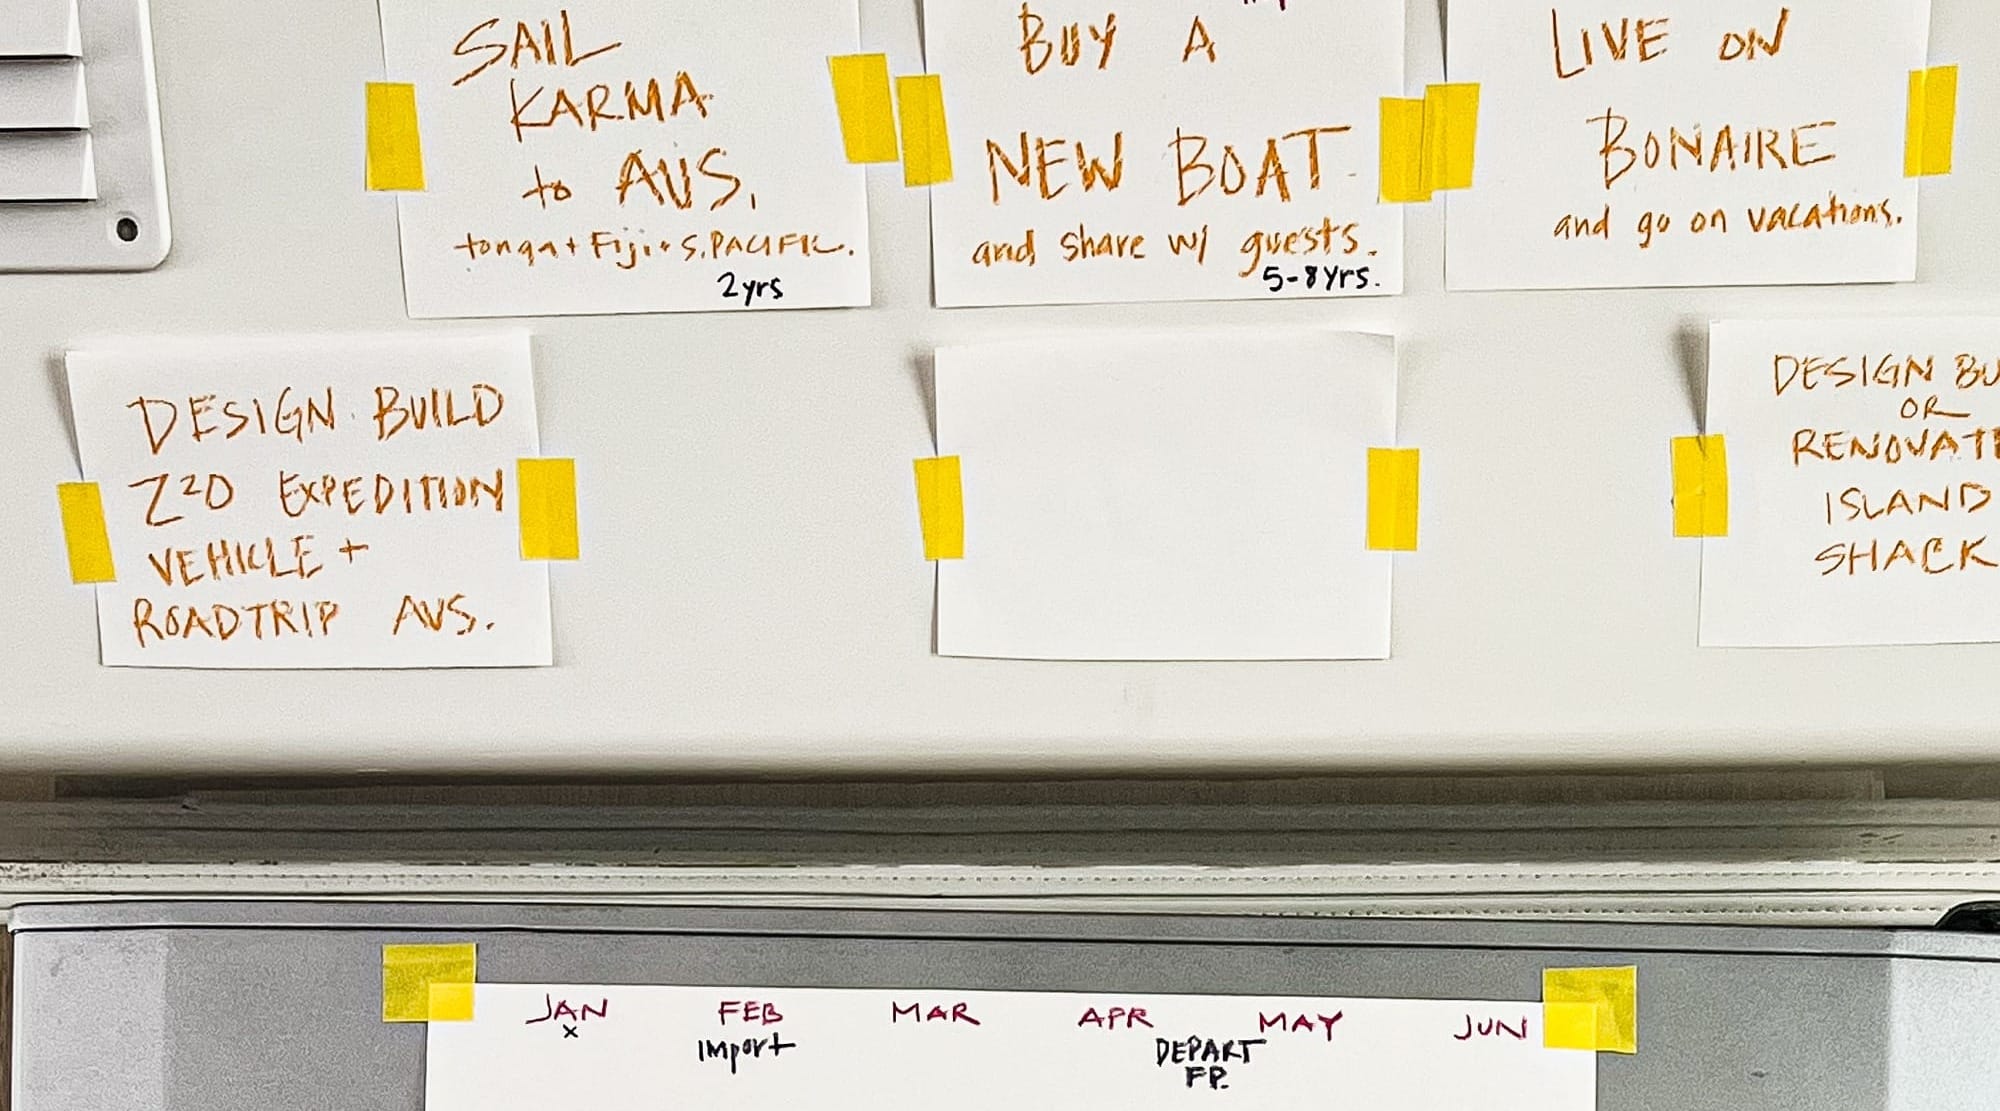 SAIL
KARMA
to AUS.
tonga + Fiji + S. PACIFIC.
2 yrs
BUY A
NEW BOAT.
and share w/ guests.
5-8 yrs.
LIVE ON
BONAIRE
and go on vacations.
DESIGN. BUILD
Z20 EXPEDITION
VEHICLE +
ROADTRIP AUS.
DESIGN BU
OR
RENOVATE
ISLAND
SHACK
JAN FEB MAR APR MAY JUN
x import DEPART
FP.